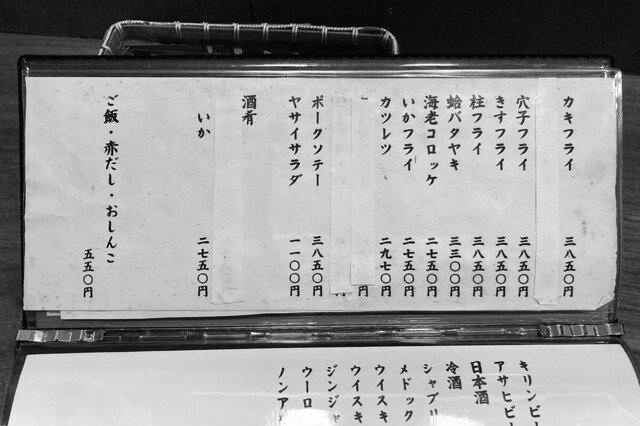 カキフライ 三八五〇円
穴子フライ 三八五〇円
きすフライ 三八五〇円
柱フライ 三八五〇円
蛤バタヤキ 三三〇〇円
海老コロッケ 二七五〇円
いかフライ 二七五〇円
カツレツ 二九七〇円
円
円
ポークソテー 三八五〇円
ヤサイサラダ 一一〇〇円
酒肴
いか 二七五〇円
ご飯・赤だし・おしんこ
五五〇円
キリンビー
アサヒビー
日本酒
冷酒
シャブリ
メドック
ウイスキ
ウイスキ
ジンジャ
ウーロ
ノンア